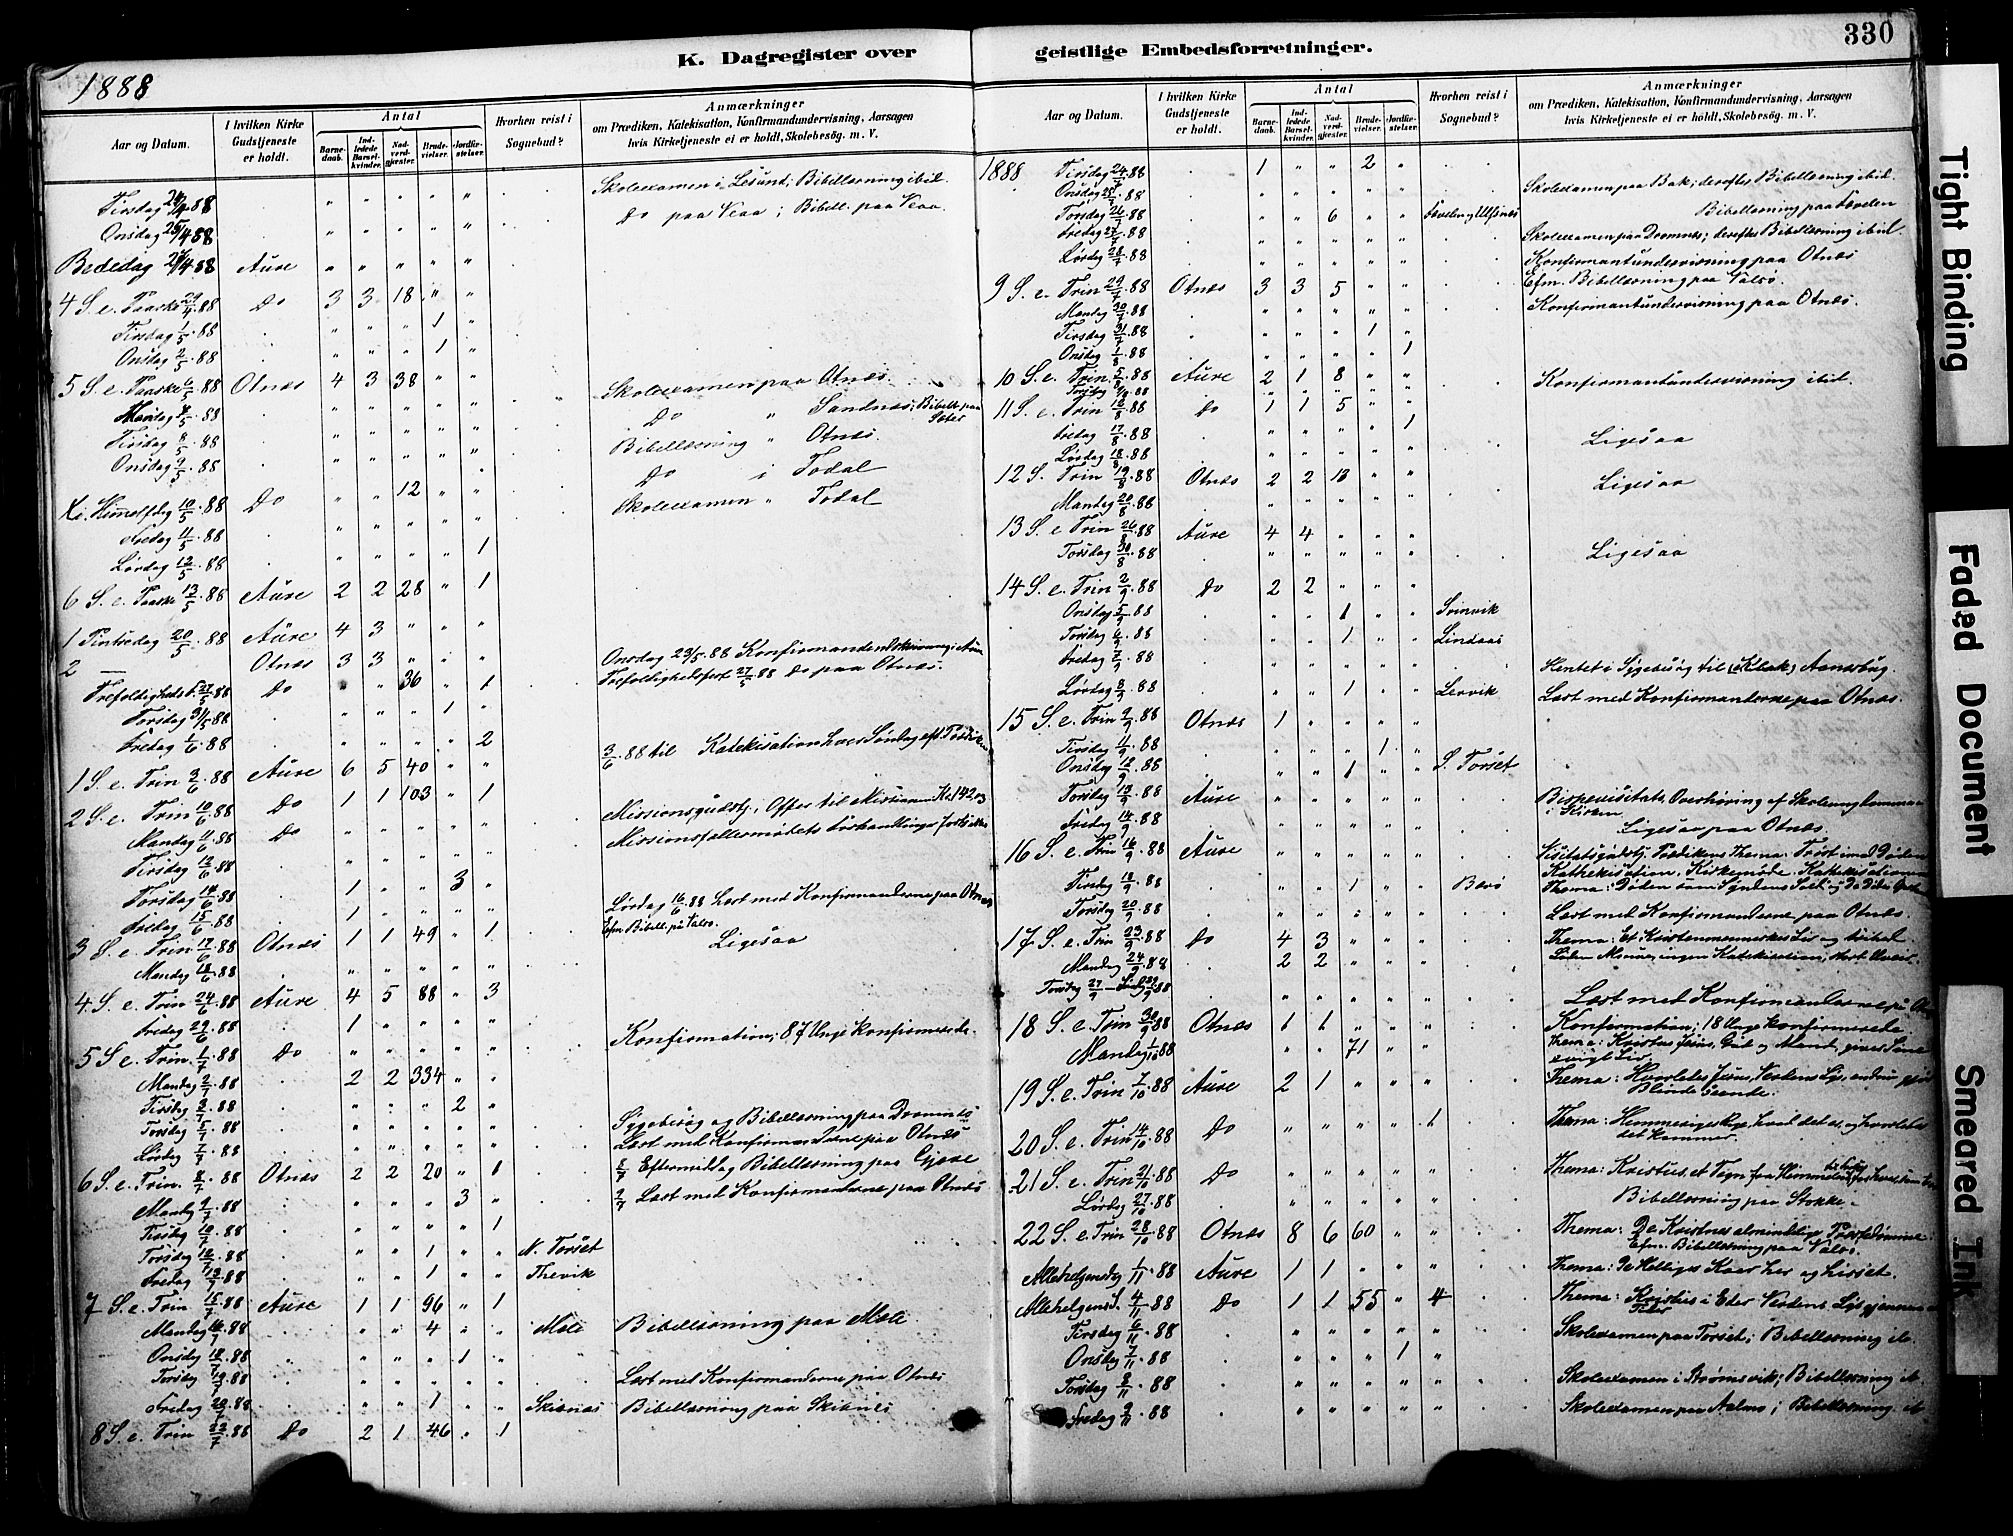 K. Dagregister over geistlige Embedsforretninger.
330
1888
Aar og Datum.
I hvilken Kirke Gudstjeneste er holdt.
Antal
Barnedaab.
Indledede Barselkvinder.
Nadverdgjester.
Brudevielser.
Jordfæstelser.
Hvorhen reist i Sognebud?
Anmærkninger
om Prædiken, Katekisation, Konfirmandundervisning, Aarsagen
hvis Kirketjeneste ei er holdt, Skolebesög. m. V.
Tirsdag 24/4 88 " " " " " Skoleexamen i Lesund; Bibellæsning ibid.
Onsdag 25/4 88 " " " " " Do paa Veaa; Bibell. paa Veaa.
Bededag 27/4 88 Aure " " " " "
4 S. e. Paaske 29/4 88 Do 3 3 18 " "
Tirsdag 1/5 88 " " " 1 "
Onsdag 2/5 88 " " " 1 "
5 S. e. Paaske 6/5 88 Otnæs 4 3 38 " "
Mandag 7/5 88 " " " " " Skoleexamen paa Otnæs.
Tirsdag 8/5 88 " " " " " Do " Sandnæs; Bibell. paa
Onsdag 9/5 88 " " " " " Bibellæsning " Otnæs.
Do i Todal
Kr. Himmelfdg 10/5 88 Do " " 12 " " Skoleexamen " Todal
Fredag 11/5 88 " " " " "
Lørdag 12/5 88 " " " " 1
6 S. e. Paaske 13/5 88 Aure 2 2 28 " 1
1 Pintsedag 20/5 88 Aure 4 3 " " "
2 — Otnæs 3 3 " " " Onsdag 23/5 88 Konfirmandindskrivning i Aure
Trefoldigheds F. 27/5 88 Do " " 36 " 1 Trefoldighedsfest 27/5 88 Do paa Otnæs.
Torsdag 31/5 88 " " " 1 "
Fredag 1/6 88 " " " " 2
1 S. e. Trin 3/6 88 Aure 6 5 40 " " 3/6 88 til Katekisation hver Søndag eft. Prædiken
2 S. e. Trin 10/6 88 Do 1 1 103 " 1 Missionsgudstj.; Offer til Missionen Kr. 142,03
Mandag 11/6 88 Do " " " " " Missionsfællesmødets Forhandlinger fortsattes
Tirsdag 12/6 88 " " " " "
Torsdag 14/6 88 1 " " 3 "
Fredag 15/6 88 1 " " " " Lørdag 16/6 88 Læst med Konfirmanderne paa Otnæs
3 S. e. Trin 17/6 88 Otnæs 1 1 49 " 1 Efm. Bibell. på Valsø.
Mandag 18/6 88 " " " " " Ligesaa
4 S. e. Trin 24/6 88 Aure 4 5 88 " 3
Fredag 29/6 88 1 " " " "
5 S. e. Trin. 1/7 88 Do " " " " " Konfirmation; 87 Unge konfirmerede.
Mandag 2/7 88 2 2 334 " "
Tirsdag 3/7 88 " " " 2 "
Torsdag 5/7 88 " " " " " Sygebesøg og Bibellæsning paa Dromnæs
Lørdag 7/7 88 " " " " " Læst med Konfirmanderne paa Otnæs
6 S. e. Trin. 8/7 88 Otnæs 2 2 20 " 1 8/7 Eftermiddag Bibellæsning paa Gjøre
Mandag 9/7 88 " " " 3 " 9/7 Læst med Konfirmanderne paa Otnæs
Tirsdag 10/7 88 " " " " 1
Torsdag 12/7 88 " " 1 " " N. Torset
Fredag 13/7 88 " " 1 " " Thevik
7 S. e. Trin 15/7 88 Aure 1 1 96 " 1
Mandag 16/7 88 " " 4 " " Mole Bibellæsning paa Mole
Onsdag 18/7 88 " " " 1 "
Torsdag 19/7 88 " " " " " Læst med Konfirmanderne paa Otnæs
Fredag 20/7 88 " " 1 " " Skibnæs Bibellæsning paa Skibnæs
8 S. e. Trin 22/7 88 Do 2 1 46 " 1
Aar og Datum.
I hvilken Kirke Gudstjeneste er holdt.
Antal
Barnedaab.
Indledede Barselkvinder.
Nadverdgjester.
Brudevielser.
Jordfæstelser.
Hvorhen reist i Sognebud?
Anmærkninger
om Prædiken, Katekisation, Konfirmandundervisning, Aarsagen
hvis Kirketjeneste ei er holdt, Skolebesög. m. V.
1888 Tirsdag 24/7 88 1 " " 2 "
Onsdag 25/7 88 " " " " " Skoleexamen paa Bak; derefter Bibellæsning ibid.
Torsdag 26/7 88 " " 6 " " Bibellæsning paa
Fredag 27/7 88 " " " " " Skoleexamen paa Dromnæs; derefter Bibellæsning ibid.
Lørdag 28/7 88 " " " " " Konfirmantundervisning paa Otnæs
9 S. e. Trin 29/7 88 Otnæs 3 3 5 " " Efm. Bibellæsning paa Valsø
Mandag 30/7 88 " " " " " Konfirmantundervisning paa Otnæs.
Tirsdag 31/7 88 " " " 1 "
Onsdag 1/8 88 " " " " 1
10 S. e. Trin. 5/8 88 Aure 2 1 8 " " Konfirmantundervisning ibid.
Torsdag 9/8 88 " " " " "
11 S. e. Trin 12/8 88 Do 1 1 5 " "
Fredag 17/8 88 " " " " 1 Ligesaa
Lørdag 18/8 88 " " " " "
12 S. Trin 19/8 88 Otnæs 2 2 13 " " Ligesaa
Mandag 20/8 88 " " " " "
13 S. e Trin 26/8 88 Aure 4 4 " " "
Torsdag 30/8 88 " " " " " Ligesaa
14 S. e. Trin 2/9 88 Do 2 2 " " "
Onsdag 5/9 88 " " 1 " " Svinvik
Torsdag 6/9 88 " " 1 " " Lindaas
Fredag 7/9 88 " " " " " Hentet i Sygebesøg til
Lørdag 8/9 88 " " 1 " " Lervik Læst med Konfirmanderne paa Otnæs.
15 S. e. Trin 9/9 88 Otnæs 1 " " " "
Tirsdag 11/9 88 " " " 1 "
Onsdag 12/9 88 " " 1 " " S. Torset
Torsdag 13/9 88 Aure " " " " " Bispevisitats, Overhøring af Skoleungdommen
i Kirken.
Fredag 14/9 88 " " " " " Ligesaa paa Otnæs.
16 S. e. Trin 16/9 88 Aure " " " " " Visitatsgudstj. Prædikens Thema: Trøst imod Døden
Kathekisation, Kirkemøde. Katekisationens
Tirsdag 18/9 88 " " 1 " " Thema: Døden som Syndens Sold
Torsdag 20/9 88 " " " " " Læst med Konfirmanderne paa Otnæs.
17 S. e. Trin 23/9 88 Do 4 3 " " " Thema: Et Kristenmenneskes Liv
Mandag 24/9 88 2 2 " " " ingen Katekisation,
Torsdag 27/9 — Lørdag 29/9 88 " " " " " Læst med Konfirmanderne på
18 S. e. Trin 30/9 88 Otnæs 1 1 " " " Konfirmation; 18 Unge konfirmerede.
Mandag 1/10 88 " " 71 " " Thema: Kristus Jesus, Gud og Mand, giver Sine
evigt Liv.
19 S. e. Trin 7/10 88 Aure 2 1 " " " Thema: Hvorledes Jesus, Verdens Lys,
Blinde Seende.
20 S. e. Trin 14/10 88 Do " " " " 1 Thema: Himmeriges Rige, hvad det er, og hvorledes
det kommer
21 S. e. Trin 21/10 88 Do " " " " " Thema: Kristus, et Tegn fra Himmelen
Lørdag 27/10 88 " " " " " Bibellæsning paa Stokke.
22 S. e. Trin 28/10 88 Otnæs 8 6 60 " " Thema: De Kristnes almindelige Præstedømme:
Efm. Bibellæsning paa Valsø.
Allehelgensdg 1/11 88 Aure 1 1 " " " Thema: De Helliges Kaar her og hisset.
Allehelgens S. 4/11 88 Do 1 1 55 " 4 Thema: Kristus i Eder Verdens Lys
Tirsdag 6/11 88 " " " " " Skoleexamen paa Torset; Bibellæsning ib.
Onsdag 7/11 88 " " " 1 "
Torsdag 8/11 88 " " " " " Skoleexamen i Brømsvik; Bibellæsning ib.
Fredag 9/11 88 " " " " " Skoleexamen paa Aalmo; Bibellæsning ib
Tight Binding
Faded Document
Smeared Ink